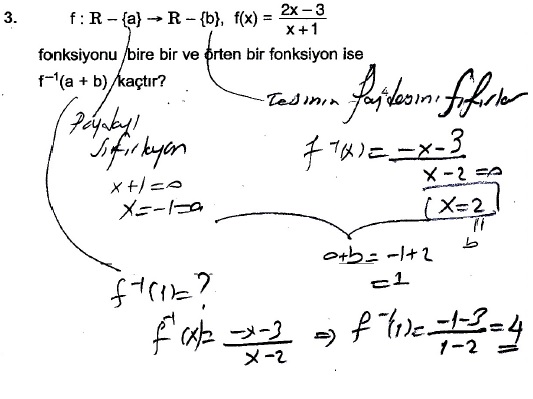 3. f : R – {a} → R – {b}, f(x) = (2x – 3)/(x + 1)
fonksiyonu bire bir ve örten bir fonksiyon ise
f⁻¹(a + b) kaçtır?
Tersinin paydasını sıfırlar
Paydayı
sıfırlayan
x+1=0
x=-1=a
f⁻¹(x)= (-x-3)/(x-2=0)
(x=2
b
a+b= -1+2
=1
f⁻¹(1)=?
f⁻¹(x)= (-x-3)/(x-2) ⇒ f⁻¹(1)= (-1-3)/(1-2) =4